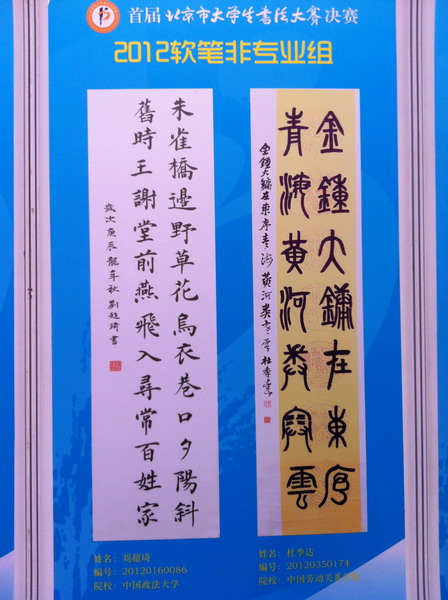 首届北京市大学生书法大赛决赛
2012软笔非专业组
金鍾大鏞在東序
青海黄河卷塞雲
金鍾大鏞在東序青海黄河卷塞雲杜季達
朱雀橋邊野草花烏衣巷口夕陽斜
舊時王謝堂前燕飛入尋常百姓家
歲次庚辰龍年秋劉超琦書
姓名：刘超琦
编号：20120160086
院校：中国政法大学
姓名：杜季达
编号：20120350174
院校：中国劳动关系学院